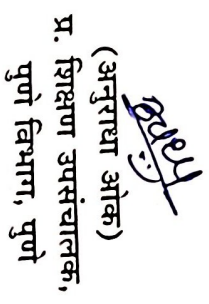 (अनुराधा ओक)
प्र. शिक्षण उपसंचालक,
पुणे विभाग, पुणे